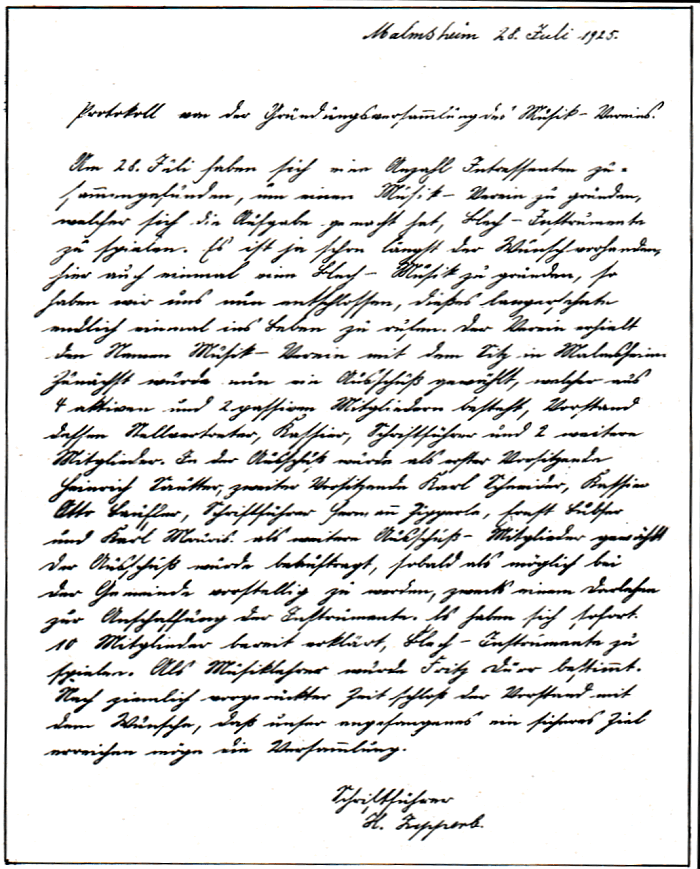 Malmsheim 28. Juli 1925.
Protokoll von der Gründungsversammlung des Musik-Vereins.
Am 28. Juli haben sich eine Anzahl Intressenten zu-
sammengefunden, um einen Musik-Verein zu gründen,
welcher sich die Aufgabe gemacht hat, Blech-Instrumente
zu spielen. Es ist ja schon längst der Wunsch vorhanden,
hier auch einmal eine Blech-Musik zu gründen, so
haben wir uns nun entschlossen, dießes langersehnte
endlich einmal ins Leben zu rufen. Der Verein erhielt
den Namen Musik-Verein mit dem Sitz in Malmsheim.
Zunächst wurde nun ein Ausschuß gewählt, welcher aus
4 aktiven und 2 passiven Mitgliedern besteht, Vorstand
dessen Stellvertreter, Kassier, Schriftführer und 2 weitere
Mitglieder. In den Ausschuß wurde als erster Vorsitzende
Heinrich Sautter, zweiter Vorsitzende Karl Schneider, Kassier
Otto, Schriftführer Hermann Zipperle, Ernst
und Karl als weitere Ausschuß-Mitglieder gewählt
Der Ausschuß wurde beauftragt, sobald als möglich bei
der Gemeinde vorstellig zu werden, zwecks einem Darlehen
zur Anschaffung der Instrumente. Es haben sich sofort
10 Mitglieder bereit erklärt, Blech-Instrumente zu
spielen. Als Musiklehrer wurde Fritz Dürr bestimmt.
Nach ziemlich vorgerückter Zeit schloß der Vorstand mit
dem Wunsche, daß unser angefangenes ein sicheres Ziel
erreichen möge die Versammlung.
Schriftführer
H. Zipperle.